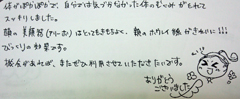 体がぽかぽかで、自分では気づかなかった体のむくみがとれて
スッキリしました。
顔の美顔器(アリーホ)はとてもきもちよく、頬のホバレイ線がきれいに!!!
びっくりの効果です。
機会があれば、またぜひ利用させていただきたいです。
ありがとう
ございました